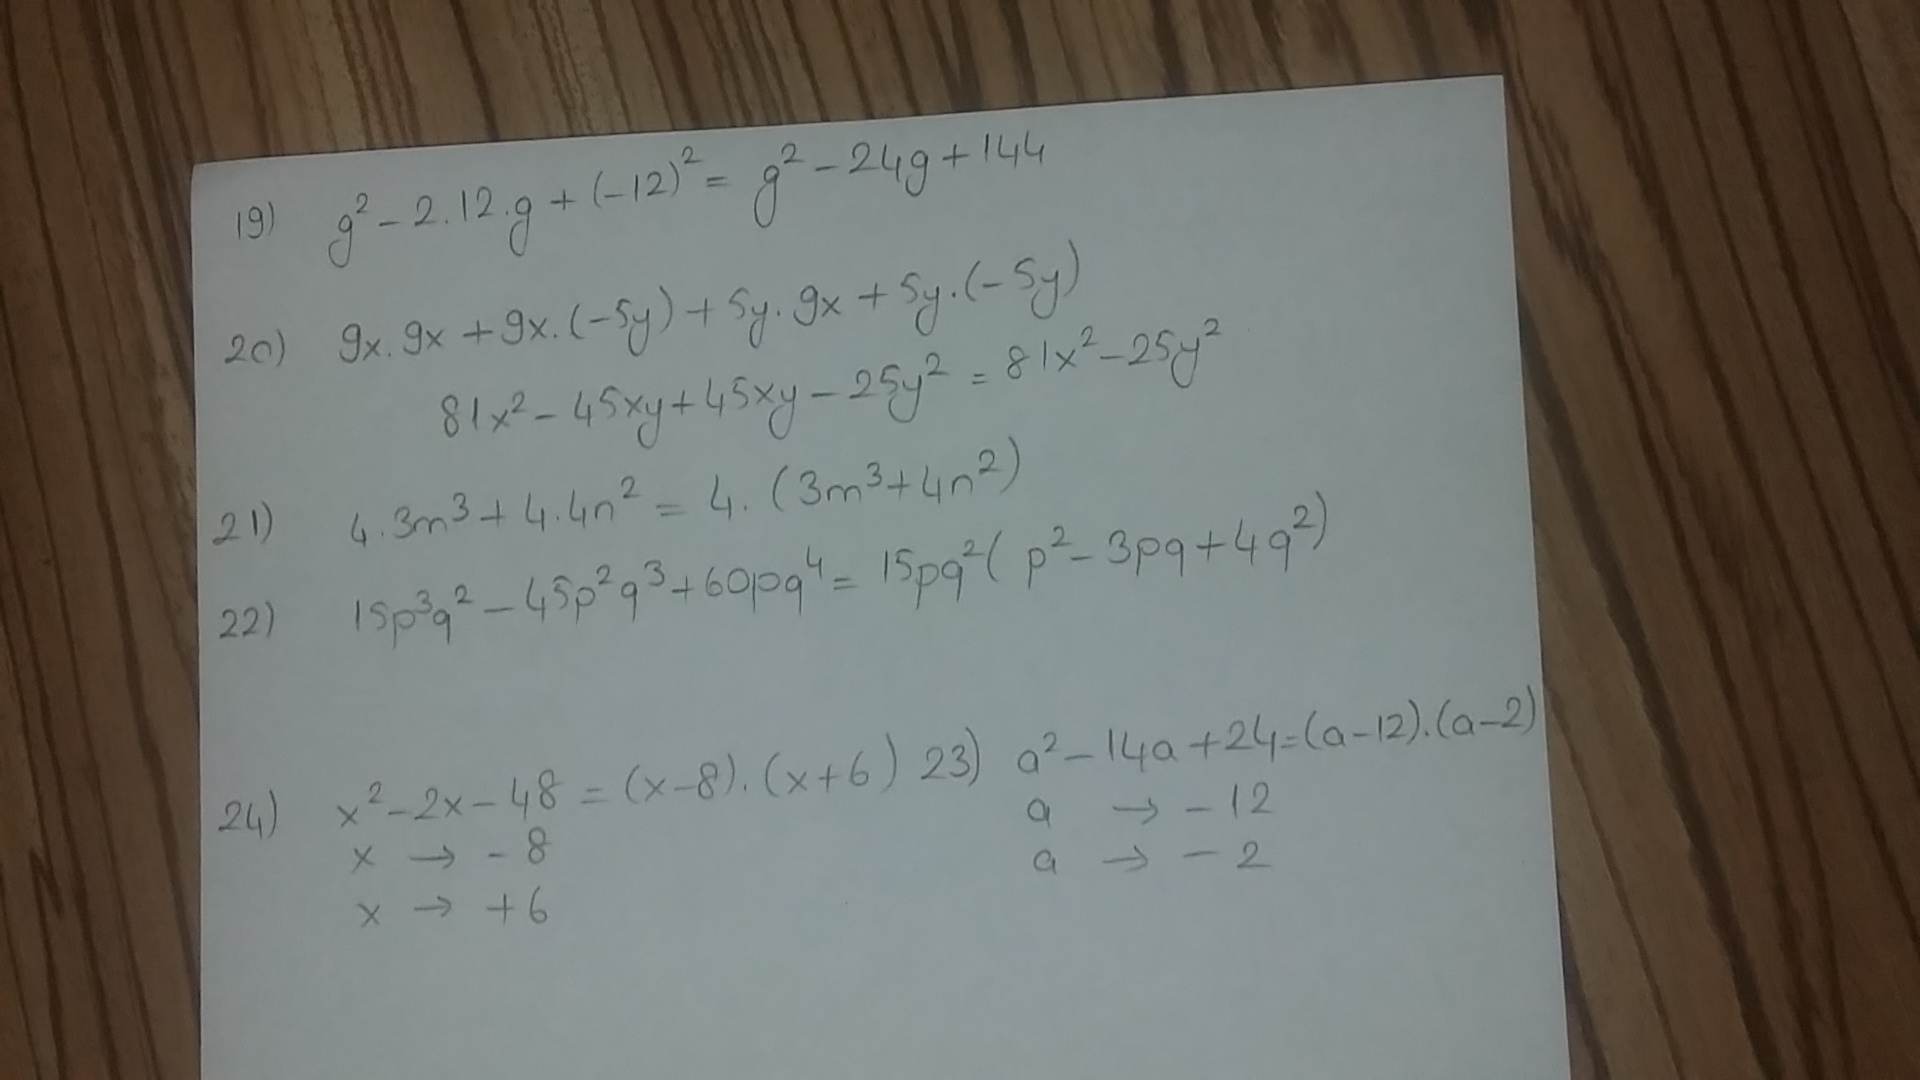 19) g² - 2.12.g + (-12)² = g² - 24g + 144
20) 9x.9x + 9x.(-5y) + 5y.9x + 5y.(-5y)
81x² - 45xy + 45xy - 25y² = 81x² - 25y²
21) 4.3m³ + 4.4n² = 4.(3m³ + 4n²)
22) 15p³q² - 45p²q³ + 60pq⁴ = 15pq²(p² - 3pq + 4q²)
24) x² - 2x - 48 = (x-8).(x+6)
x → -8
x → +6
23) a² - 14a + 24 = (a-12).(a-2)
a → -12
a → -2